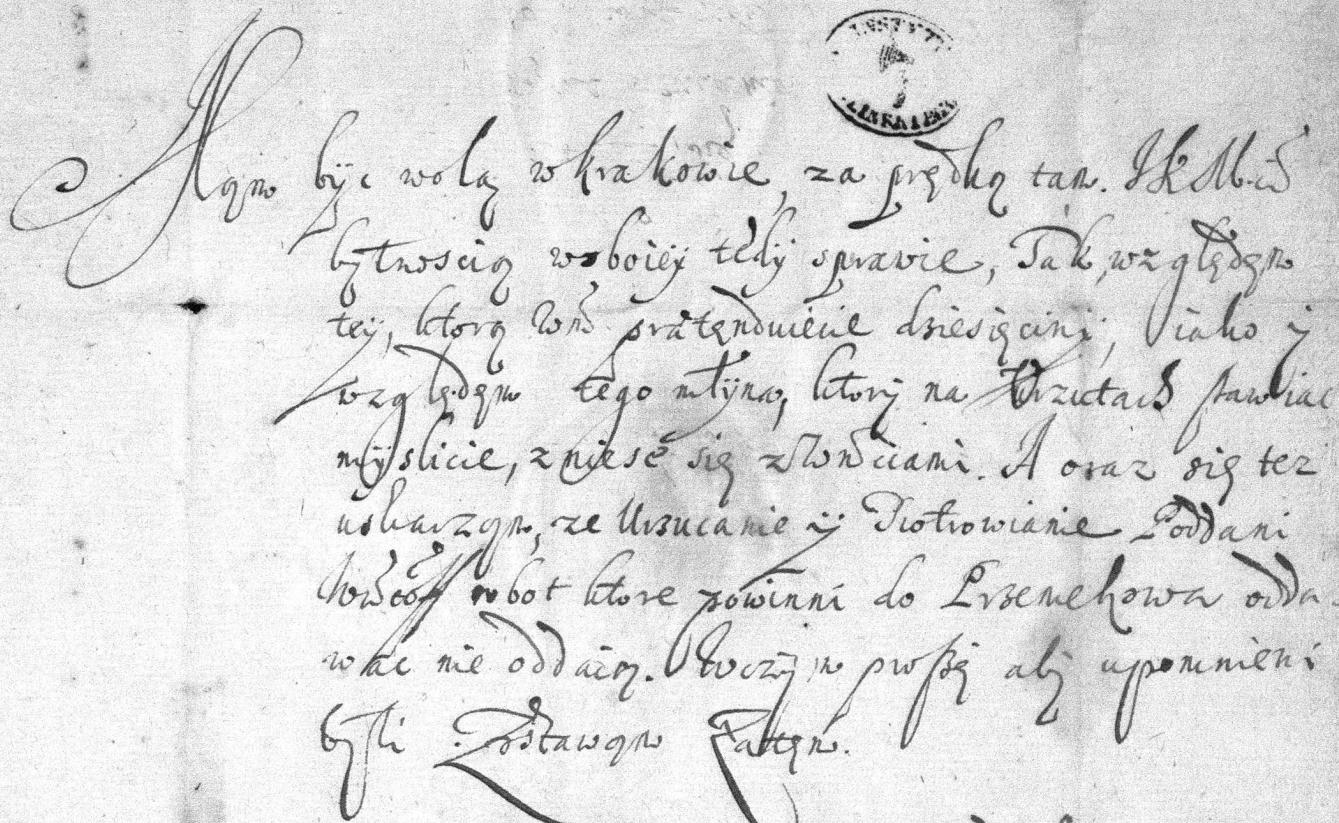 Mąm być wolą w krakowie, za prędką tam. JKMći
bytnoscią w oboiey tedy sprawie, Tak, względęm
tey, ktorą Wm̃ prætęnduiecie dziesięciny, iako y
względęm tego młyna, ktory na Urzutach stawiac
myslicie, zniesć się z Wm̃ciami. A oraz się tez
uskarząm, ze Urzucanie y Piotrowianie Poddani
robot ktore powinni do Przemekowa odda
wac nie oddaią. W czym proszę aby upomnieni
byli Zostawąm Zatęm.